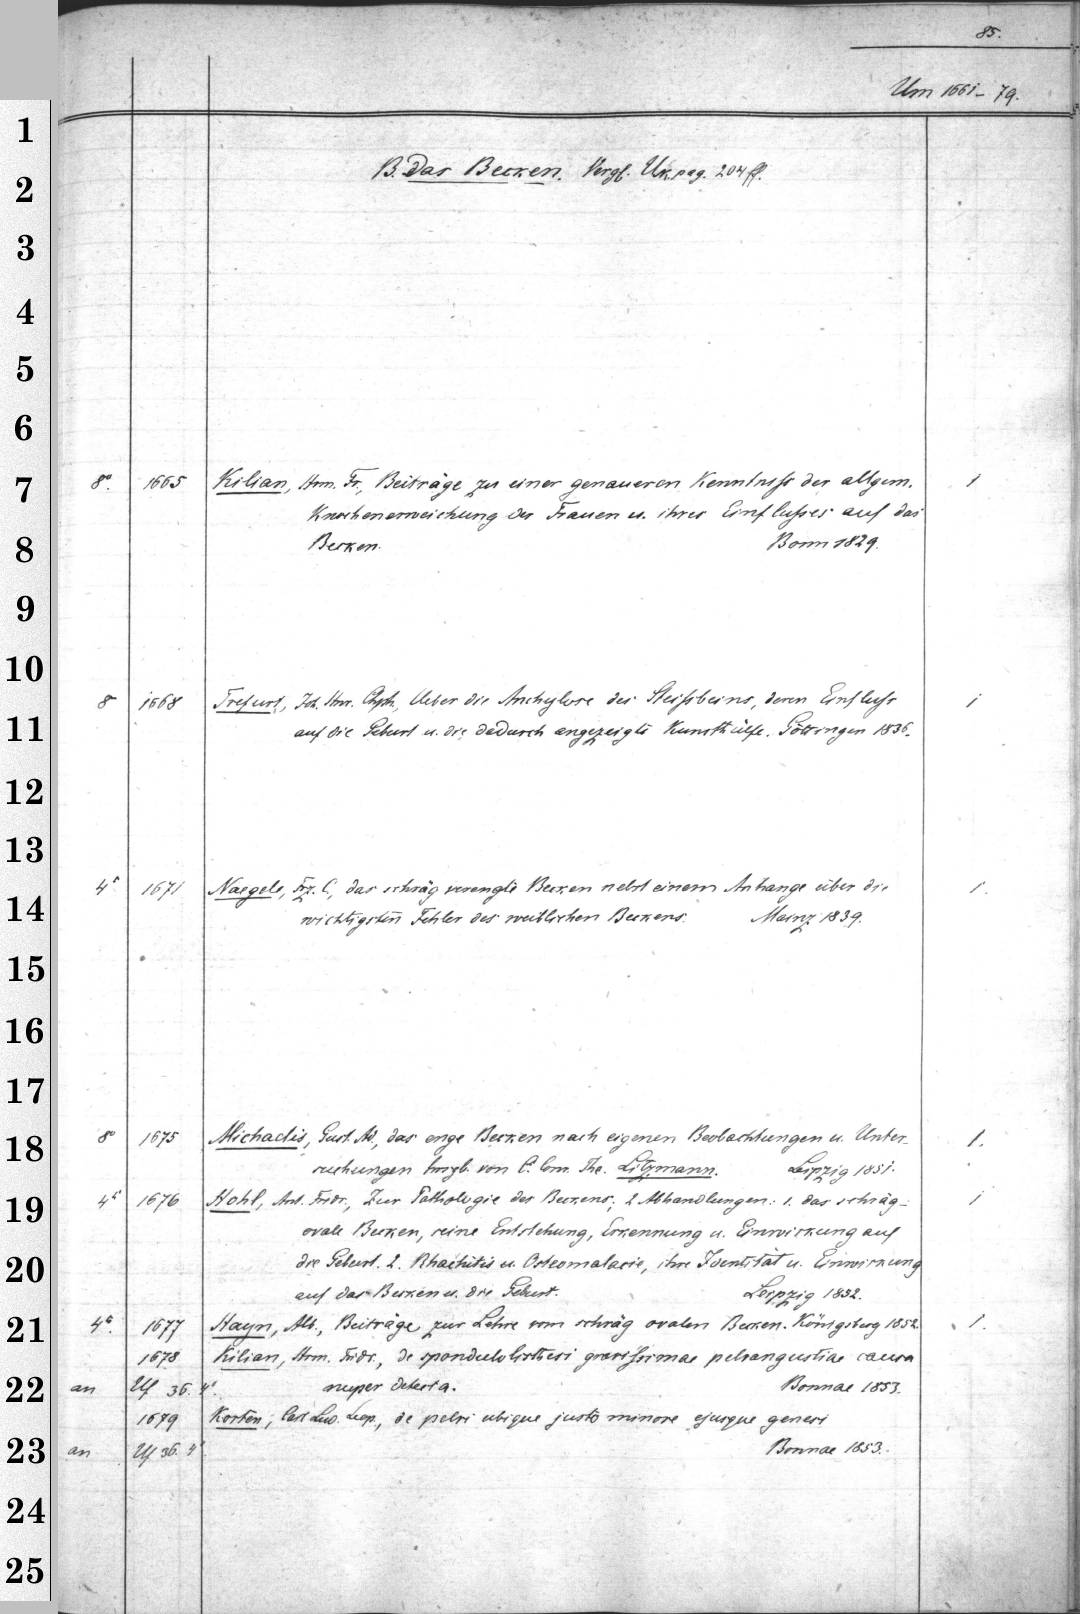 85.
Um 1661-79.
1
B. Das Becken. Vergl. Uk pag. 204 ff.
2
3
4
5
6
7
8° 1665 Kilian, Hrm. Fr., Beiträge zu einer genaueren Kenntniss der allgem. 1
Knochenerweichung der Frauen u. ihres Einflusses auf das
8
Becken. Bonn 1829.
9
10
8 1668 Trefurt, Joh. Hnr. Chph., Ueber die Anchylose des Steissbeins, deren Einfluss 1
11
auf die Geburt u. die dadurch angezeigte Kunsthülfe. Göttingen 1836.
12
13
4° 1671 Naegele, Frz. C., das schräg verengte Becken nebst einem Anhange über die 1.
14
wichtigsten Fehler des weiblichen Beckens. Mainz 1839.
15
16
17
8° 1675 Michaelis, Gust. Ad., das enge Becken nach eigenen Beobachtungen u. Unter- 1.
18
suchungen hrsgb. von C. Conr. The. Litzmann. Leipzig 1851.
4° 1676 Hohl, Ant. Fridr., Zur Pathologie des Beckens; 2 Abhandlungen: 1. das schräg- 1
19
ovale Becken, seine Entstehung, Erkennung u. Einwirkung auf
20
die Geburt. 2. Rhachitis u. Osteomalacie, ihre Identität u. Einwirkung
auf das Becken u. die Geburt. Leipzig 1852.
21
4° 1677 Hayn, Alb., Beiträge zur Lehre vom schräg ovalen Becken. Königsberg 1852. 1.
1678 Kilian, Hrm. Fridr., de spondylolisthesi gravissimae pelvangustiae causa
22
an Uf 36. 4°. nuper detecta. Bonnae 1853.
1679 Korten, Carl Lud. Leop., de pelvi ubique justo minore ejusque genesi
23
an Uf 36. 4° Bonnae 1853.
24
25